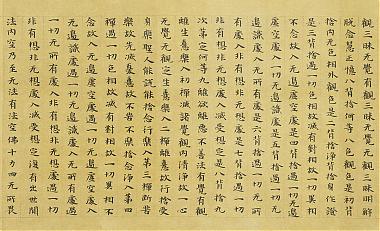 觀三昧无覺有觀三昧无覺无觀三昧明解
脫念慧正憶八背捨何等八色觀色是初背
捨內无色相外觀色是二背捨淨背捨身作證
是三背捨過一切色相故滅有對相故一切異相
不念故入无邊虛空處是四背捨過一切无邊
虛空處入一切无邊識處是五背捨過一切无
邊識處入无所有處是六背捨過一切无所有處入
非有想非无想處是七背捨過一切
非有想非无想處入滅受想定是八背捨九
次第定何等九離欲離惡不善法有覺有觀
離生喜樂入初禪滅諸覺觀內清淨故一心
无覺无觀定生喜樂入二禪離喜故行捨受
身樂聖人能說能捨念行樂入第三禪斷苦
樂故先滅憂喜故不苦不樂捨念淨入第四
禪過一切色相故滅有對相故一切異相不
念故入无邊虛空處過一切无邊虛空處入一切
无邊識處過一切无邊識處入无所有處過
一切无所有處入非有想非无想處過一切
非有想非无想處入滅受想定復有出世間
法內空乃至无法有法空佛十力四无所畏